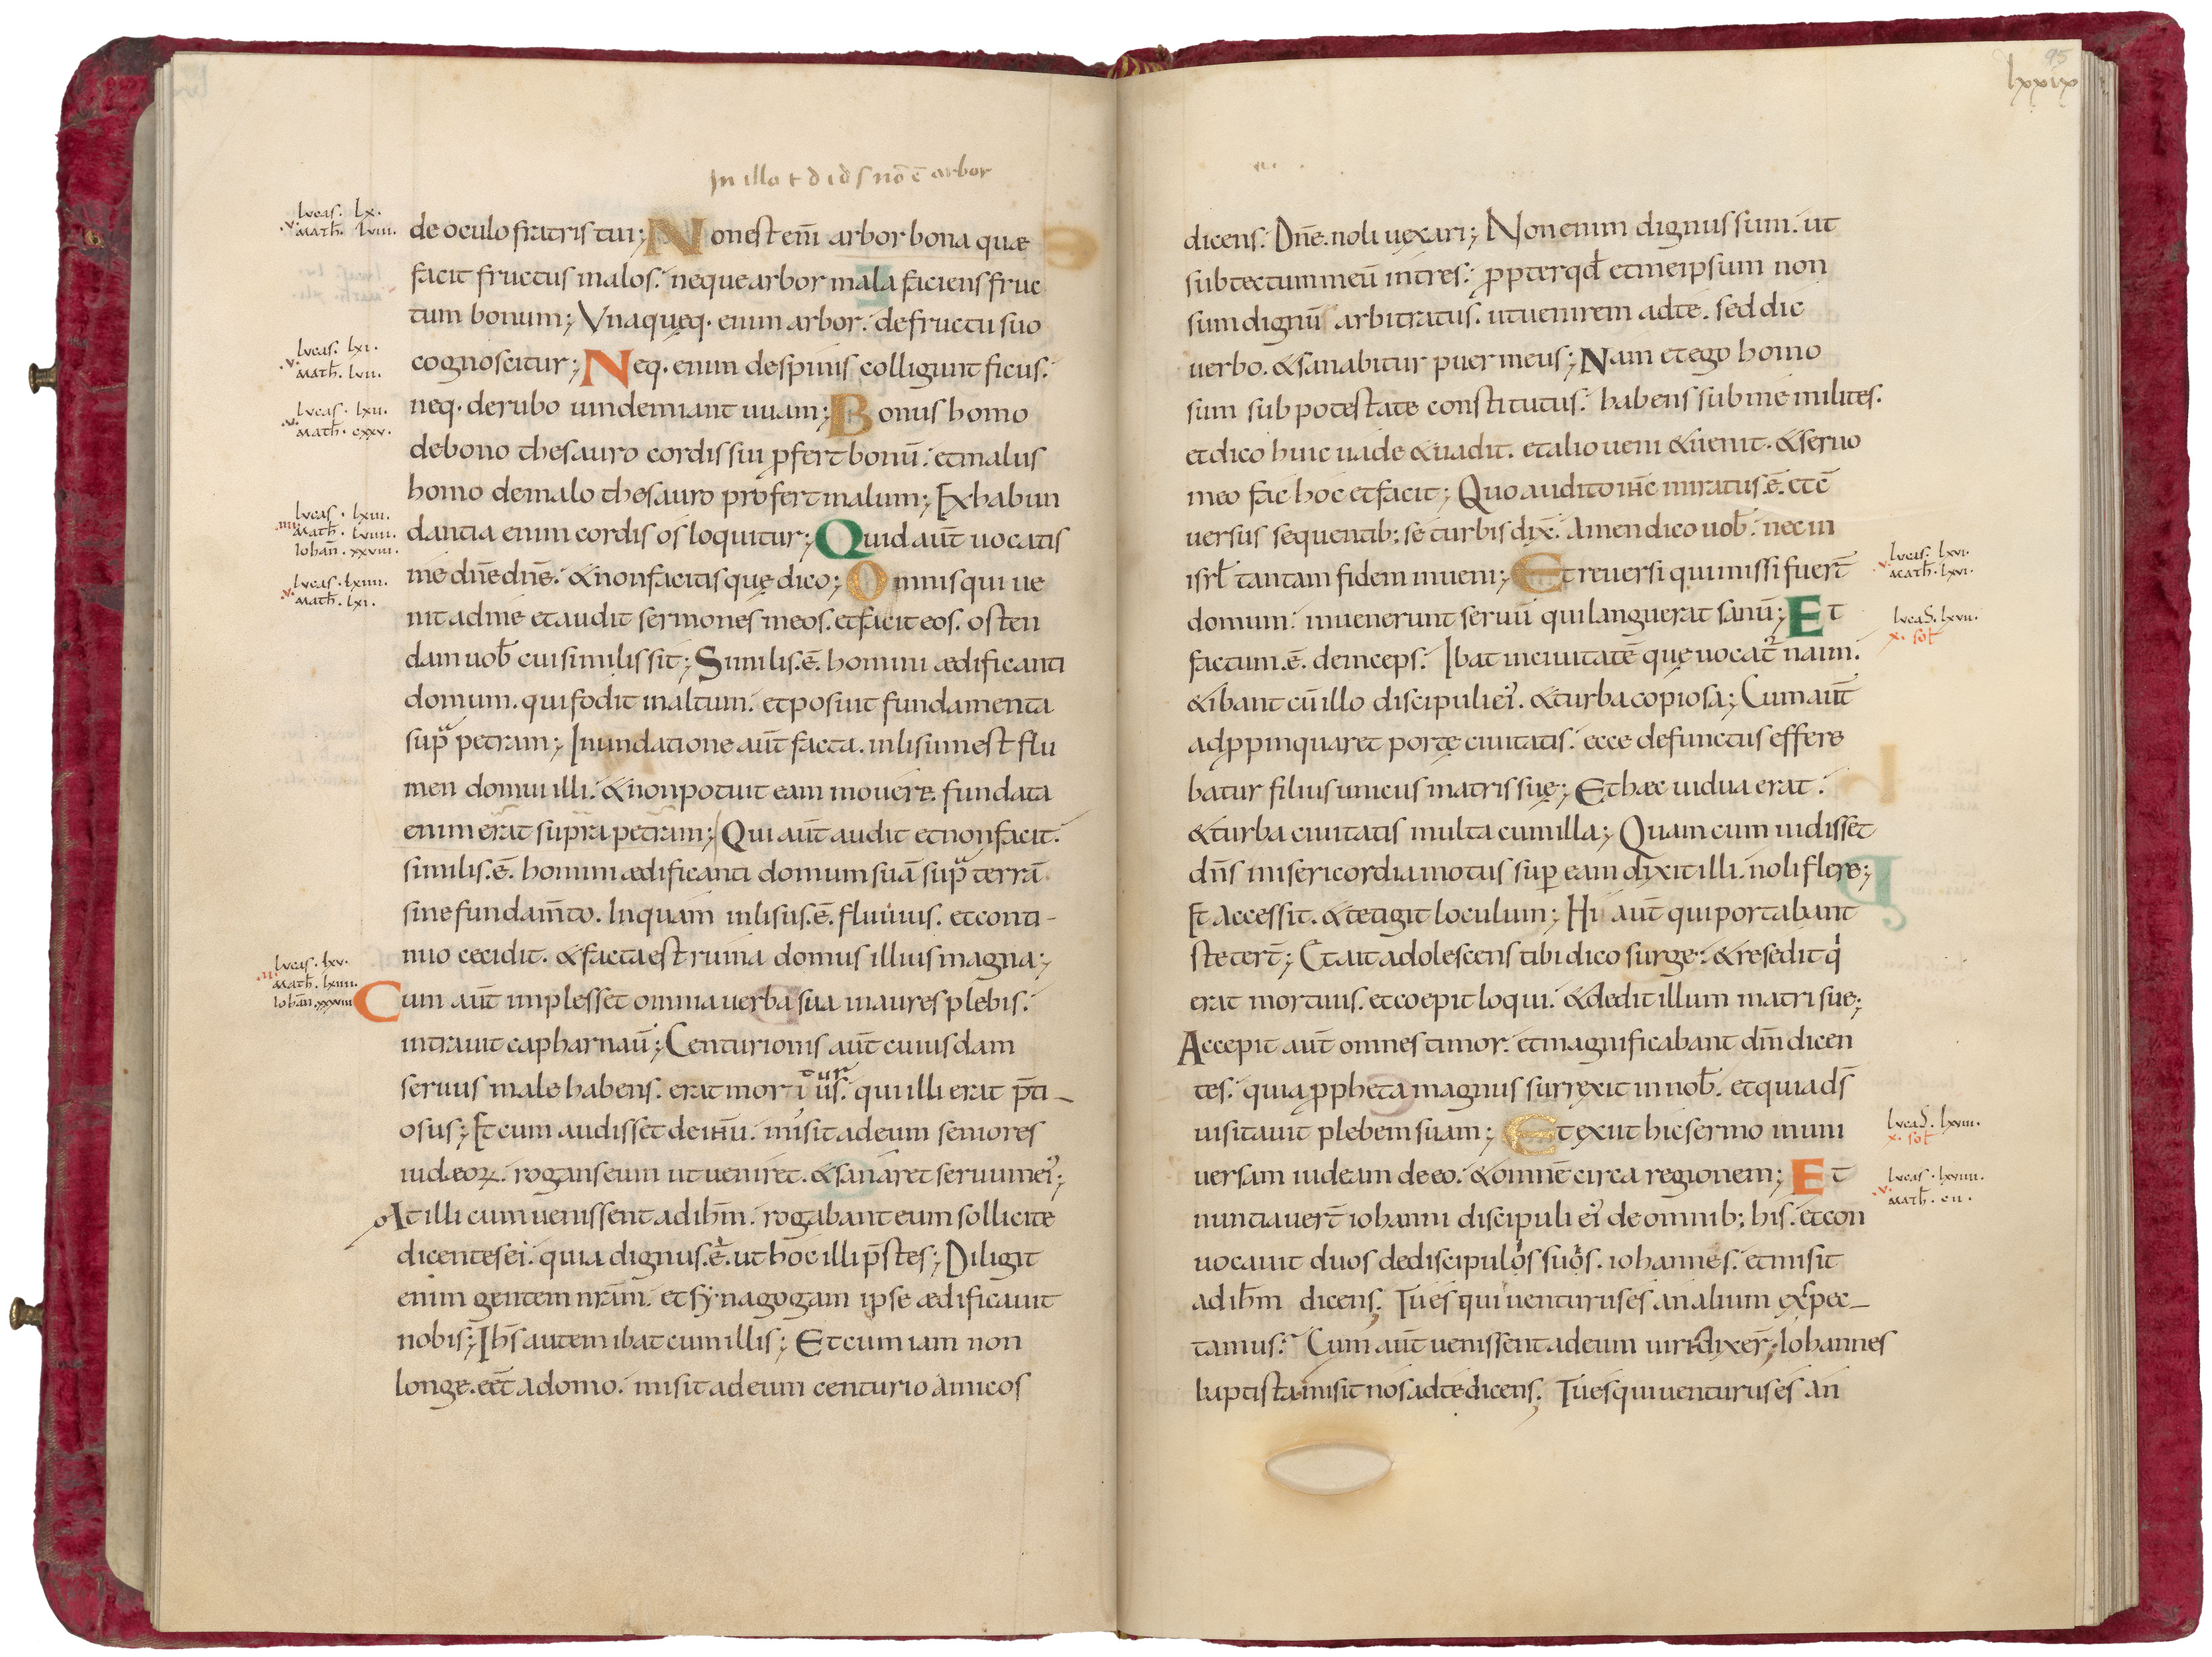 In illo t d ih̅s nō ē arbor
lucas. lx.
.v. math̅. lviii.
de oculo fratris tui; Non est eni̅ arbor bona quæ
facit fructus malos. neque arbor mala faciens fruc
tum bonum; Vnaquęq. enim arbor. de fructu suo
lucas. lxi.
.v. math̅. lvii.
cognoscitur; Neq. enim de spinis colligunt ficus.
lucas. lxii.
.v. math̅. cxxv.
neq. de rubo uindemiant uuam; Bonus homo
de bono thesauro cordis sui ꝓfert bonu̅. et malus
homo de malo thesauro profert malum; Exhabun
lucas. lxiii.
.iii. math̅. lviiii.
Iohan̅. xxviii.
dantia enim cordis os loquitur; Quid aut̅ uocatis
lucas. lxiiii.
.v. math̅. lxi.
me dn̅e dn̅e. & non facitis quę dico; Omnis qui ue
nit ad me et audit sermones meos. et facit eos. osten
dam uob̅ cui similis sit; Similis .e̅. homini ædificanti
domum. qui fodit in altum. et posuit fundamenta
sup̅ petram; Inundatione aut̅ facta. inlisum est flu
men domui illi. & non potuit eam mouere. fundata
enim erat supra petram; Qui aut̅ audit et non facit.
similis .e̅. homini ædificanti domum sua̅ sup̅ terra̅
sine fundam̅to. In quam inlisus .e̅. fluuius. et conti-
nuo cecidit. & facta est ruina domus illius magna;
lucas. lxv.
.iii. math̅. lxiiii.
Iohan̅. xxxviii
Cum aut̅ implesset omnia uerba sua in aures plebis.
intrauit capharnau̅; Centurionis aut̅ cuiusdam
tur
seruus male habens. erat mor i us. qui illi erat p̅ti-
osus; Et cum audisset de ih̅u. misit ad eum seniores
iudæoꝝ. rogans eum ut ueniret. & sanaret seruum ei';
At illi cum uenissent ad ih̅m. rogabant eum sollicite
dicentes ei. quia dignus .e̅. ut hoc illi p̅stes; Diligit
enim gentem nr̅am. et synagogam ipse ædificauit
nobis; Ih̅s autem ibat cum illis; Et cum iam non
longe. ee̅t a domo. misit ad eum centurio amicos
95
lxxix
dicens. Dn̅e. noli uexari; Non enim dignus sum. ut
sub tectum meu̅ intres. ꝓpter qd̅ et me ipsum non
sum dignu̅ arbitratus. ut uenirem ad te. sed dic
uerbo. & sanabitur puer meus; Nam et ego homo
sum sub potestate constitutus. habens sub me milites.
et dico huic uade & uadit. et alio ueni & uenit. & seruo
meo fac hoc et facit; Quo audito ih̅c miratus .e̅. et c̅
uersus sequentib; se turbis dix̅. Amen dico uob̅. nec in
lucas. lxvi.
.v. math̅. lxvi.
isrl̅ tantam fidem inueni; Et reuersi qui missi fuer̅t
lucaS. lxvii.
x. sol̅
domum. inuenerunt seruu̅ qui languerat sanu̅; Et
factum .e̅. deinceps. Ibat in ciuitate̅ quę uocat̅ naim.
& ibant cu̅ illo discipuli ei'. & turba copiosa; Cum aut̅
adꝓpinquaret portę ciuitatis. ecce defunctus effere
batur filius unicus matris suę; Et hæc uidua erat.
& turba ciuitatis multa cum illa; Quam cum uidisset
dn̅s misericordia motus suꝑ eam dixit illi. noli flere;
Et accessit. & tetigit loculum; Hi aut̅ qui portabant
steter̅t; Et ait adolescens tibi dico surge. & resedit q'
erat mortuus. et coepit loqui. & dedit illum matri sue;
Accepit aut̅ omnes timor. et magnificabant dm̅ dicen
tes. quia ꝓpheta magnus surrexit in nob̅. et quia ds̅
lucaS. lxviii.
x. sol̅
uisitauit plebem suam; Et exiit hic sermo in uni
lucas. lxviiii.
.v. math̅. cii.
uersam iudeam de eo. & omne̅ circa regionem; Et
nuntiauer̅t iohanni discipuli ei' de omnib; his. et con
uocauit duos de discipulos suos. iohannes. et misit
ad ih̅m dicens. Tu es qui uenturus es an alium expec-
tamus. Cum aut̅ uenissent ad eum uiri dixer̅; Iohannes
baptista misit nos ad te dicens. Tu es qui uenturus es an